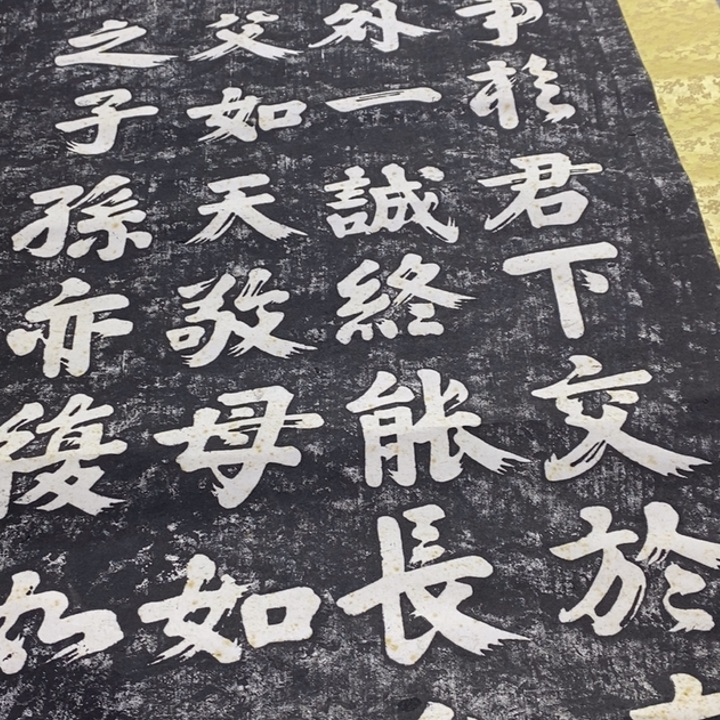 事於君下交於
外一誠終能長
父如天敬母如
之子孫亦復如